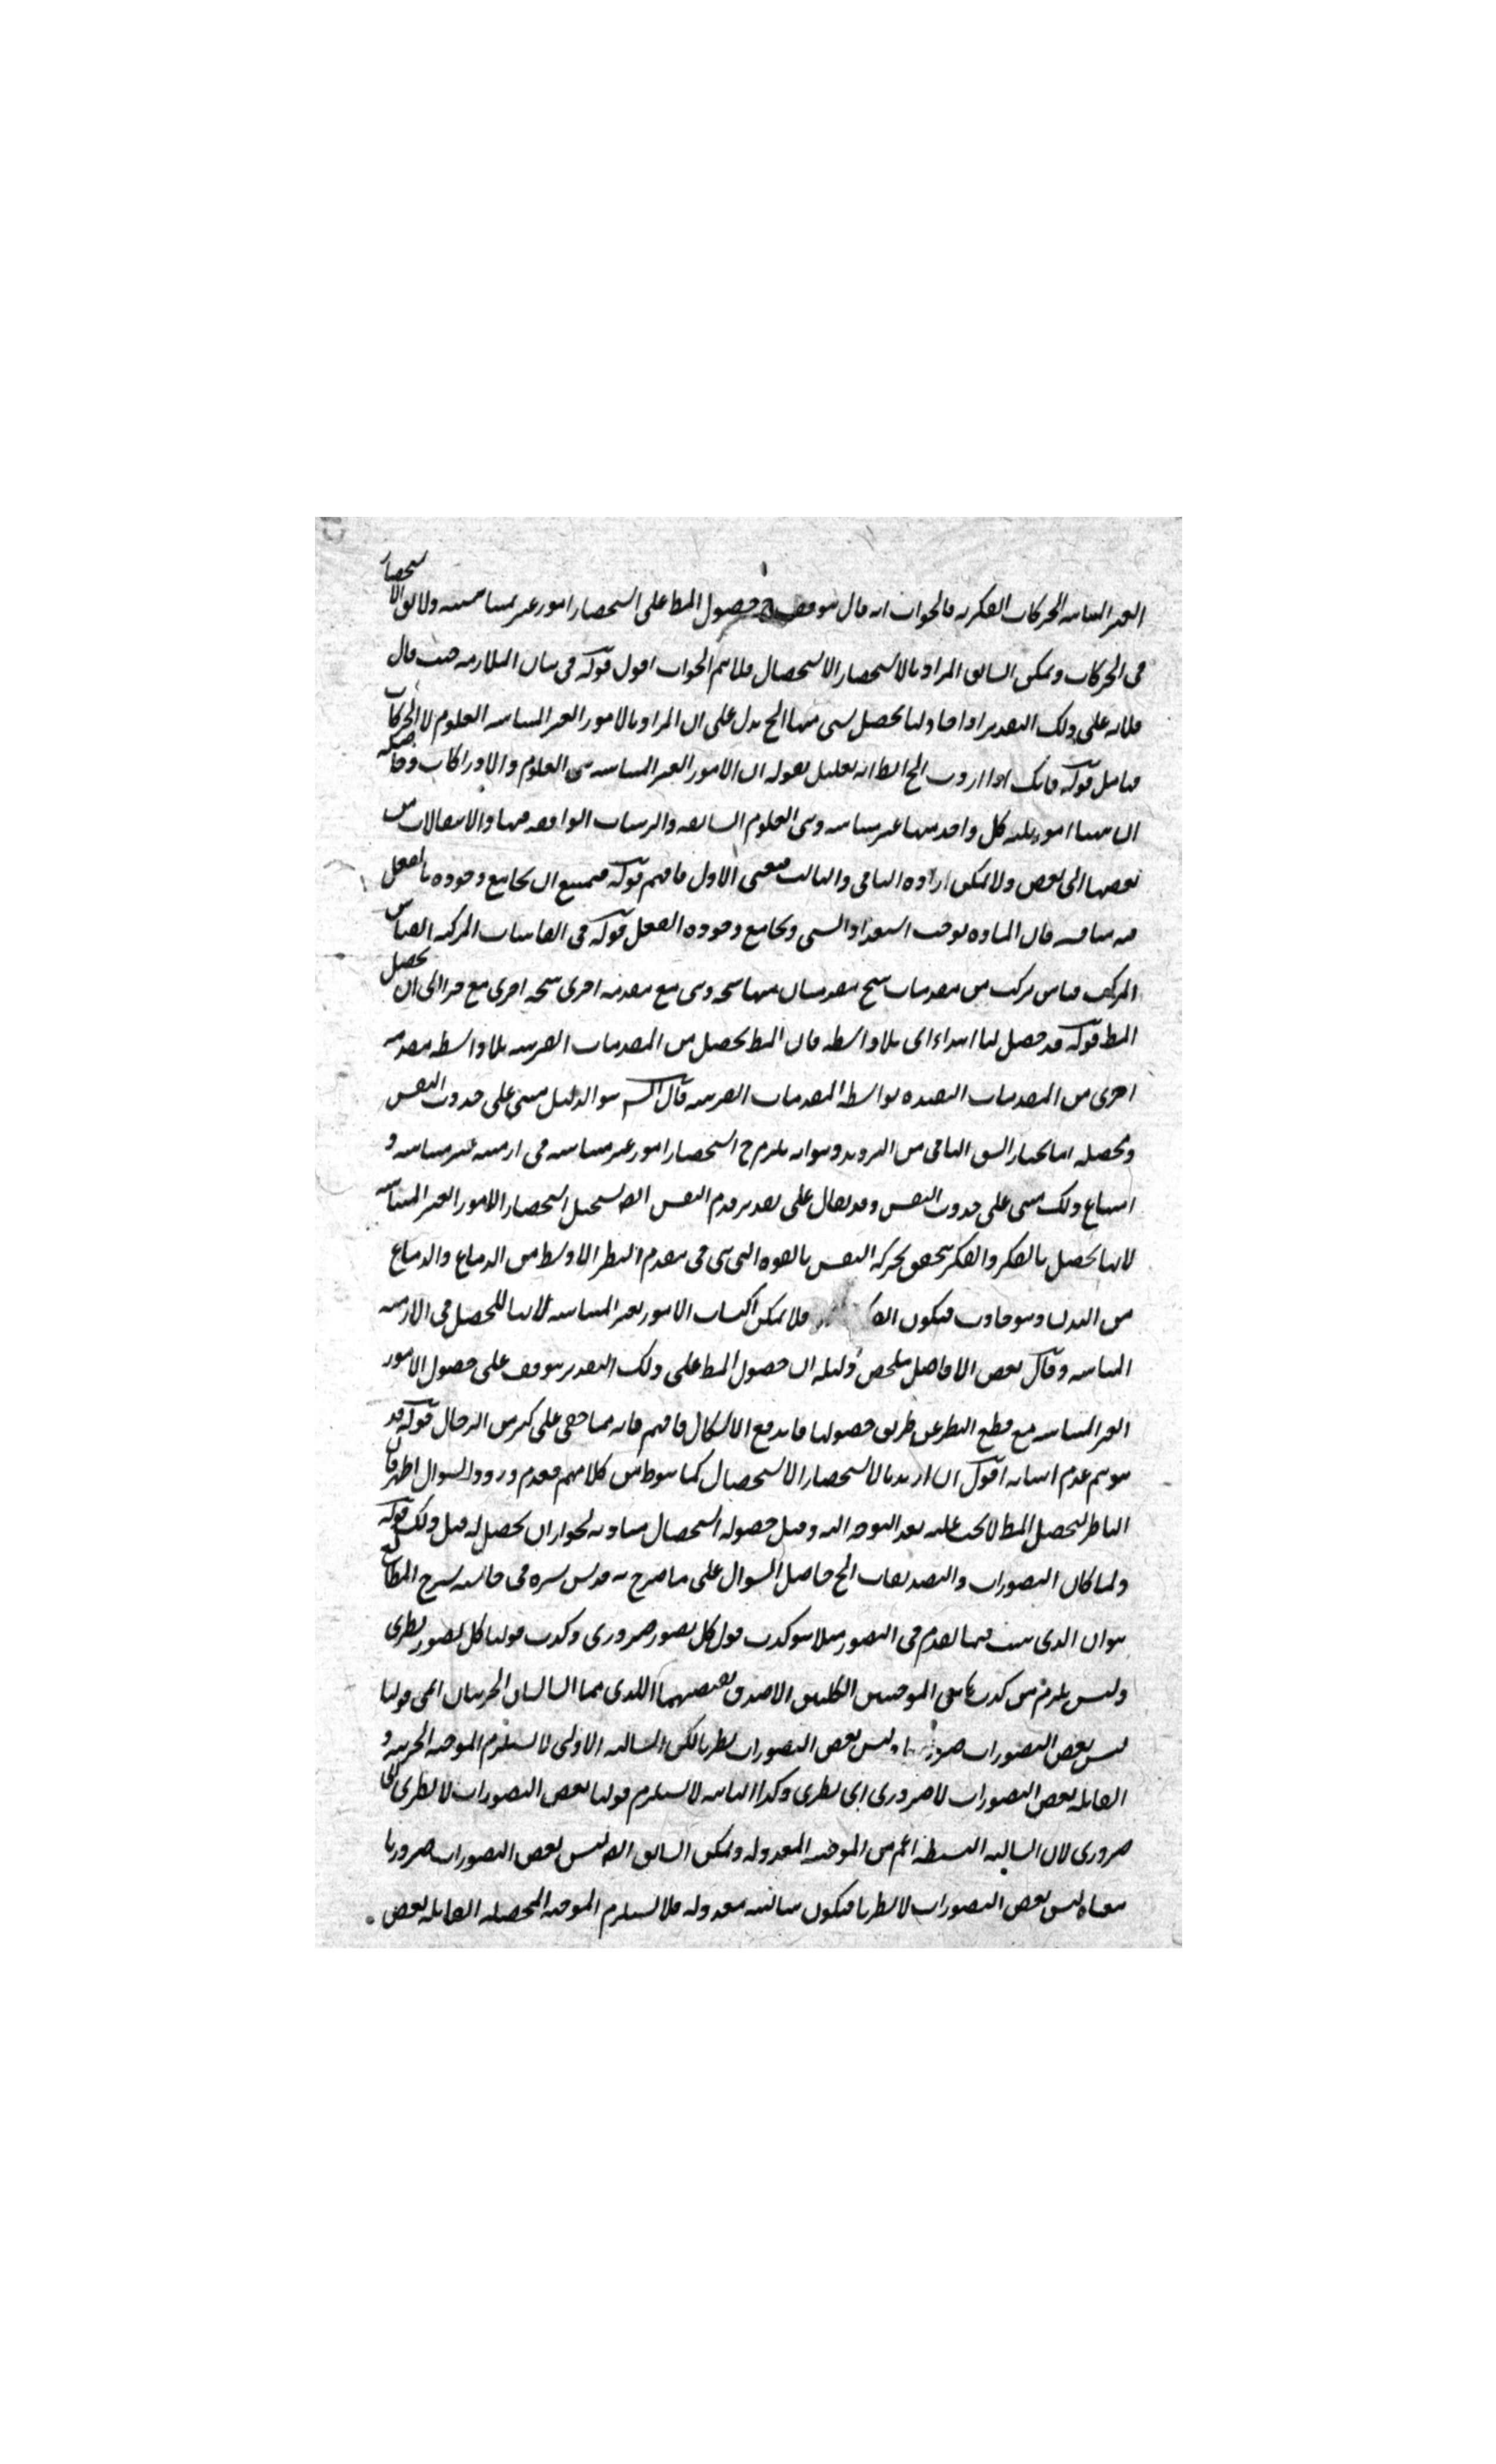 الغير المتناهية الحركات الفكرية فالجواب انه قال يتوقف ح حصول المط على استحضار امور غير متناهية ولا يق الاستحضار
في الحركات ويمكن ان يق المراد بالاستحضار الاستحصال فلا يتم الجواب اقول قوله في بيان الملازمة حيث قال
فلانه على ذلك التقدير اذا حاولنا تحصيل شئ منها الخ يدل على ان المراد بالامور الغير المتناهية العلوم لا الحركات
فتامل قوله فانك اذا اردت الخ الظ انه تعليل لقوله ان الامور الغير المتناهية هى العلوم والادراكات وحاصله
ان ههنا امور ثلثة كل واحد منها غير متناه وهى العلوم السابقة والترتيبات الواقعة فيها والانتقالات من
بعضها الى بعض ولا يمكن ارادة الثاني والثالث فتعين الاول فافهم قوله فيمتنع ان يجامع وجوده بالفعل
فيه مناقشة فان المادة توجب استعداد الشئ ويجامع وجوده الفعل قوله في القياسات المركبة القياس
المركب قياس مركب من مقدمات ينتج مقدمتان منها نتيجة وهى مع مقدمة اخرى نتيجة اخرى مع جرا الى ان يحصل
المط قوله قد حصل لنا ابتداء اى بلا واسطة فان المط يحصل من المقدمات القريبة بلا واسطة مقدمة
اخرى من المقدمات البعيدة بواسطة المقدمات القريبة قال الش هو الدليل مبني على حدوث النفس
ومحصله انا نختار الشق الثاني من الترديد وهو انه يلزم ح استحضار امور غير متناهية في ازمنة غير متناهية و
امتناع ذلك مبنى على حدوث النفس وقد يقال على تقدير قدم النفس ايضا يستحيل استحضار الامور الغير المتناهية
لانها تحصل بالفكر والفكر يتحقق بحركة النفس بالقوة التى هى في مقدم البطن الاوسط من الدماغ والدماغ
من البدن وهو حادث فيكون فلا يمكن اكتساب الامور الغير المتناهية لانها تحصل في الازمنة
المتناهية وقال بعض الافاضل ملخص دليله ان حصول المط على ذلك التقدير يتوقف على حصول الامور
الغير المتناهية مع قطع النظر عن طريق حصولها فاندفع الاشكال فافهم فانه مما خفى على كثير من الرجال قوله قد
يتوهم عدم اتيانه اقول ان اريد بالاستحضار الاستحصال كما هو ظ من كلامهم فعدم ورود السؤال اظهر فان
الناظر لتحصيل المط لا يجب عليه بعد التوجه اليه وقبل حصوله استحصال مباديه لجواز ان يحصل له قبل ذلك قوله
ولما كان التصورات والتصديقات الخ حاصل السؤال على ما صرح به قدس سره في حاشية شرح المطالع
هو ان الذى ثبت فيما تقدم في التصور مثلا هو كذب قول كل تصور ضرورى وكذب قولنا كل تصور نظرى
وليس يلزم من كذب هاتين الموجبتين الكليتين الا صدق نقيضيهما اللذين هما السالبتان الجزئيتان اعنى قولنا
ليس بعض التصورات ضروريا وليس بعض التصورات نظريا لكن السالبة الاولى لا تستلزم الموجبة الجزئية و
القائلة بعض التصورات لا ضرورى اى نظرى وكذا الثانية لا تستلزم قولنا بعض التصورات لا نظرى اى
ضرورى لان السالبة البسيطة اعم من الموجبة المعدولة ويمكن ان يق ايضا ليس بعض التصورات ضروريا
معناه ليس بعض التصورات لا نظريا فيكون سالبة معدولة فلا تستلزم الموجبة المحصلة القائلة بعض